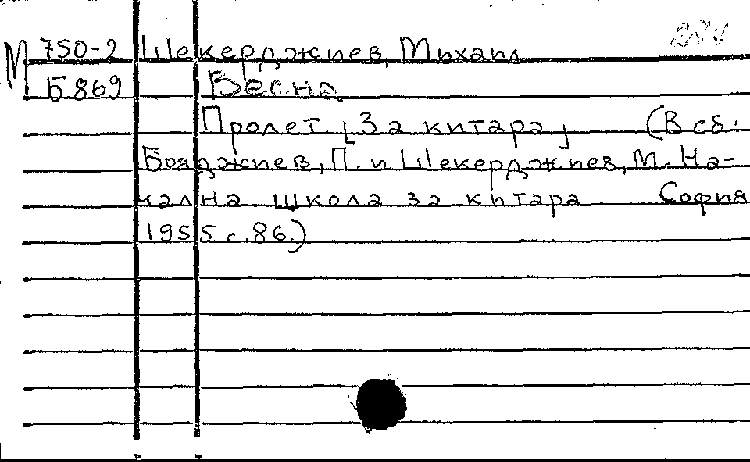 М 750-2 Шекерджиев, Михаил
Б869 Весна
Пролет [За китара] (В сб.
Бояджиев, П. и Шекерджиев, М. На-
чална школа за китара София
1955 с. 86.)